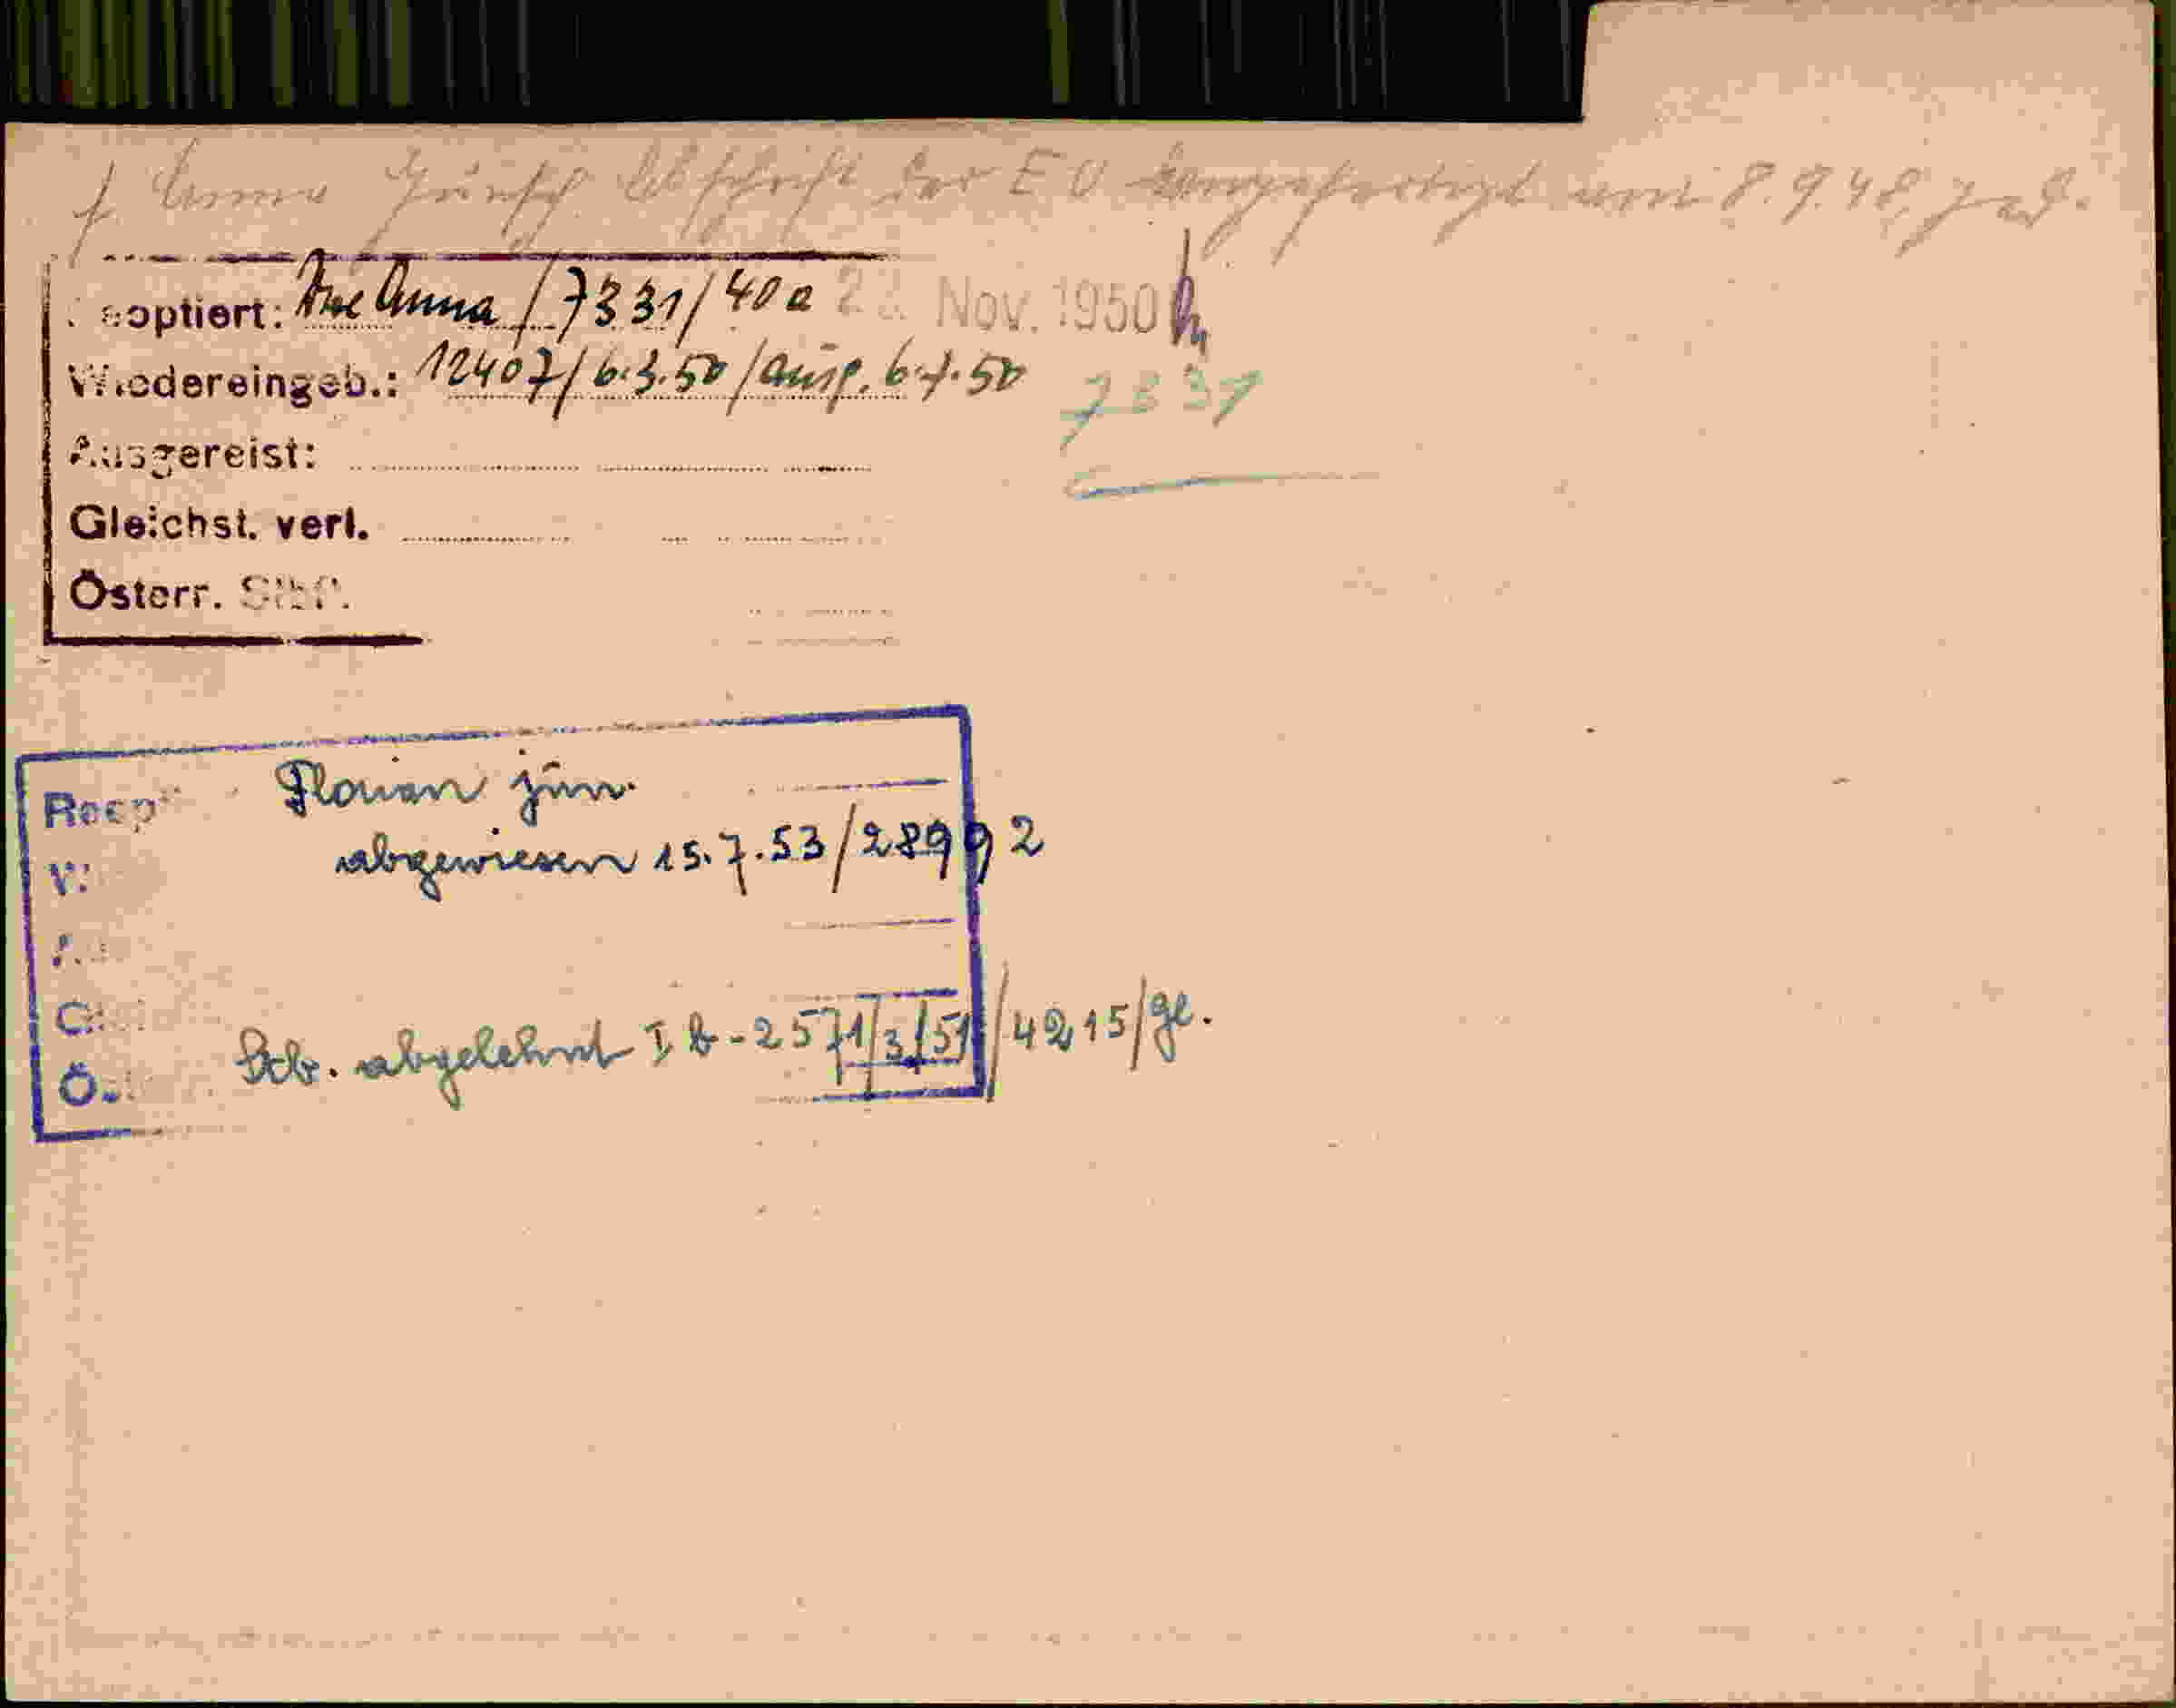 Abschrift der EU ausgefertigt am 8.9.48
eoptiert: Anna / 7331 / 40a 22. Nov. 1950
Wiedereingeb.: 12407 / 6.3.50 / ausg. 6.7.50 7331
Ausgereist:
Gleichst. verl.
Österr. Stbf.
Reopt Florian jun.
abgewiesen 15.7.53 / 28992
Stb. abgelehnt I b - 2571/3/51 / 4215/ge.
Ö